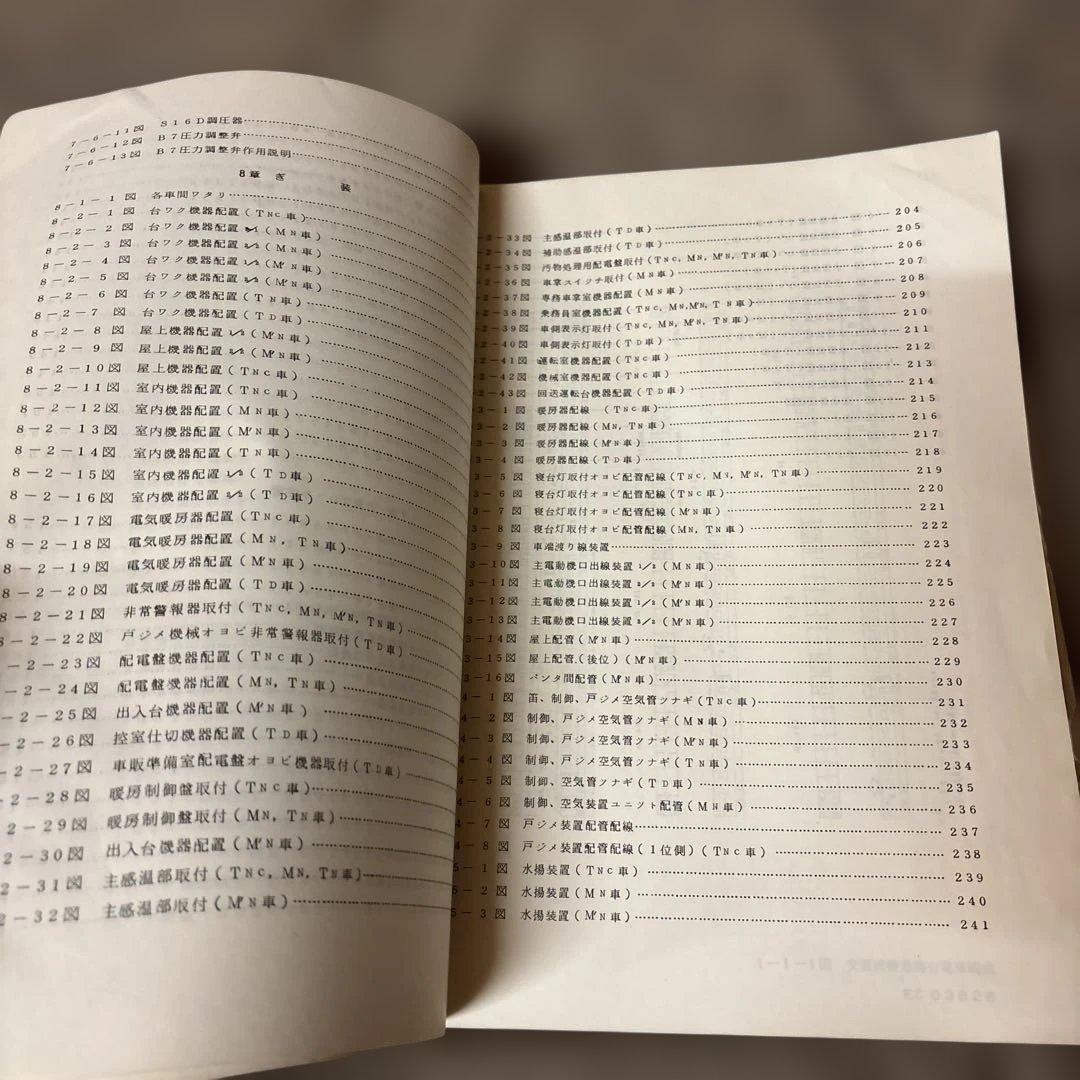 7－6－11図 S16D調圧器
7－6－12図 B7圧力調整弁
7－6－13図 B7圧力調整弁作用説明
8章 ぎ 装
8－1－1図 各車間ワタリ
8－2－1図 台ワク機器配置(TNC車)
8－2－2図 台ワク機器配置 (MN車)
8－2－3図 台ワク機器配置2/2(MN車)
8－2－4図 台ワク機器配置1/2(M'N車)
8－2－5図 台ワク機器配置2/2(M'N車)
8－2－6図 台ワク機器配置(TN車)
8－2－7図 台ワク機器配置(TD車)
8－2－8図 屋上機器配置1/2(M'N車)
8－2－9図 屋上機器配置2/2(M'N車)
8－2－10図 屋上機器配置(TNC車)
8－2－11図 室内機器配置(TNC車)
8－2－12図 室内機器配置(MN車)
8－2－13図 室内機器配置(M'N車)
8－2－14図 室内機器配置(TN車)
8－2－15図 室内機器配置1/2(TD車)
8－2－16図 室内機器配置2/2(TD車)
8－2－17図 電気暖房器配置(TNC車)
8－2－18図 電気暖房器配置(MN,TN車)
8－2－19図 電気暖房器配置(M'N車)
8－2－20図 電気暖房器配置(TD車)
8－2－21図 非常警報器取付(TNC,MN,M'N,TN車)
8－2－22図 戸ジメ機械オヨビ非常警報器取付(TD車)
－2－23図 配電盤機器配置(TNC車)
－2－24図 配電盤機器配置(MN,TN車)
－2－25図 出入台機器配置(M'N車)
－2－26図 控室仕切機器配置(TD車)
－2－27図 車販準備室配電盤オヨビ機器取付(TD車)
－2－28図 暖房制御盤取付(TNC車)
2－29図 暖房制御盤取付(MN,TN車)
2－30図 出入台機器配置(M'N車)
2－31図 主感温部取付(TNC,MN,TN車)
2－32図 主感温部取付(M'N車)
－2－33図 主感温部取付(TD車) 204
－2－34図 補助感温部取付(TD車) 205
－2－35図 汚物処理用配電盤取付(TNC,MN,M'N,TN車) 206
－2－36図 車掌スイッチ取付(MN車) 207
－2－37図 専務車掌室機器配置(MN車) 208
－2－38図 乗務員室機器配置(TNC,MN,M'N,TN車) 209
－2－39図 車側表示灯取付(TNC,MN,M'N,TN車) 210
－2－40図 車側表示灯取付(TD車) 211
－2－41図 運転室機器配置(TNC車) 212
－2－42図 機械室機器配置(TNC車) 213
－2－43図 回送運転台機器配置(TD車) 214
3－1図 暖房器配線 (TNC車) 215
3－2図 暖房器配線(MN,TN車) 216
3－3図 暖房器配線(M'N車) 217
3－4図 暖房器配線(TD車) 218
3－5図 寝台灯取付オヨビ配管配線(TNC,MN,M'N,TN車) 219
3－6図 寝台灯取付オヨビ配管配線(TNC車) 220
3－7図 寝台灯取付オヨビ配管配線(M'N車) 221
3－8図 寝台灯取付オヨビ配管配線(MN,TN車) 222
3－9図 車端渡り線装置 223
3－10図 主電動機口出線装置1/2(MN車) 224
3－11図 主電動機口出線装置2/2(MN車) 225
3－12図 主電動機口出線装置1/2(M'N車) 226
3－13図 主電動機口出線装置2/2(M'N車) 227
3－14図 屋上配管(M'N車) 228
3－15図 屋上配管.(後位)(M'N車) 229
3－16図 パンタ間配管(M'N車) 230
4－1図 笛、制御、戸ジメ空気管ツナギ(TNC車) 231
4－2図 制御、戸ジメ空気管ツナギ(MN車) 232
4－3図 制御、戸ジメ空気管ツナギ(M'N車) 233
4－4図 制御、戸ジメ空気管ツナギ(TN車) 234
4－5図 制御、空気管ツナギ(TD車) 235
4－6図 制御、空気装置ユニット配管(MN車) 236
4－7図 戸ジメ装置配管配線 237
4－8図 戸ジメ装置配管配線(1位側)(TNC車) 238
5－1図 水揚装置(TNC車) 239
5－2図 水揚装置(MN車) 240
5－3図 水揚装置(M'N車) 241